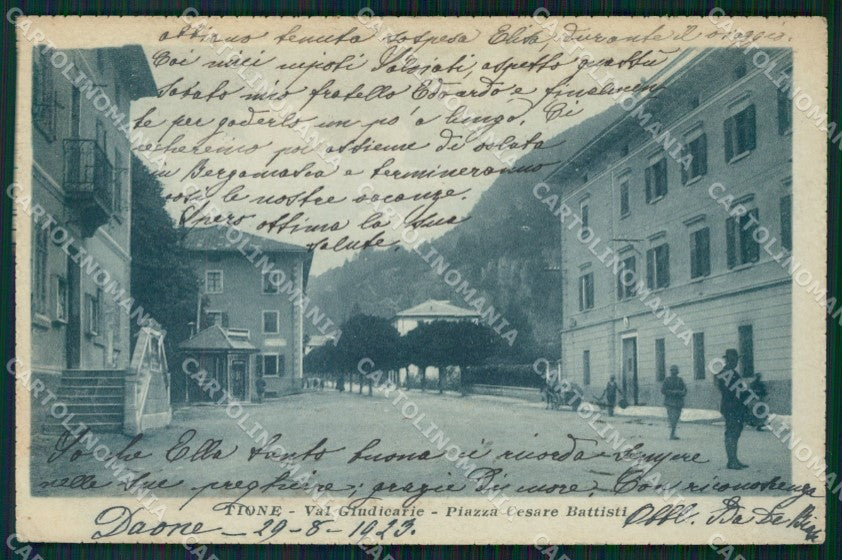 ottimo tenuta sospesa Elisa, durante il viaggio.
Coi miei nipoti aspetto quassù
Sabato mio fratello Edoardo e finalmen
te per goderlo un po' a lungo. Ci
recheremo poi assieme di volata
in Bergamasca e termineranno
così le nostre vacanze.
Spero ottima la sua
salute.
So che Ella tanto buona ci ricorda sempre
nelle Sue preghiere; grazie di more. Con riconoscenza
TIONE - Val Giudicarie - Piazza Cesare Battisti
Daone - 29-8-1923.
Obbl.
CARTOLINOMANIA